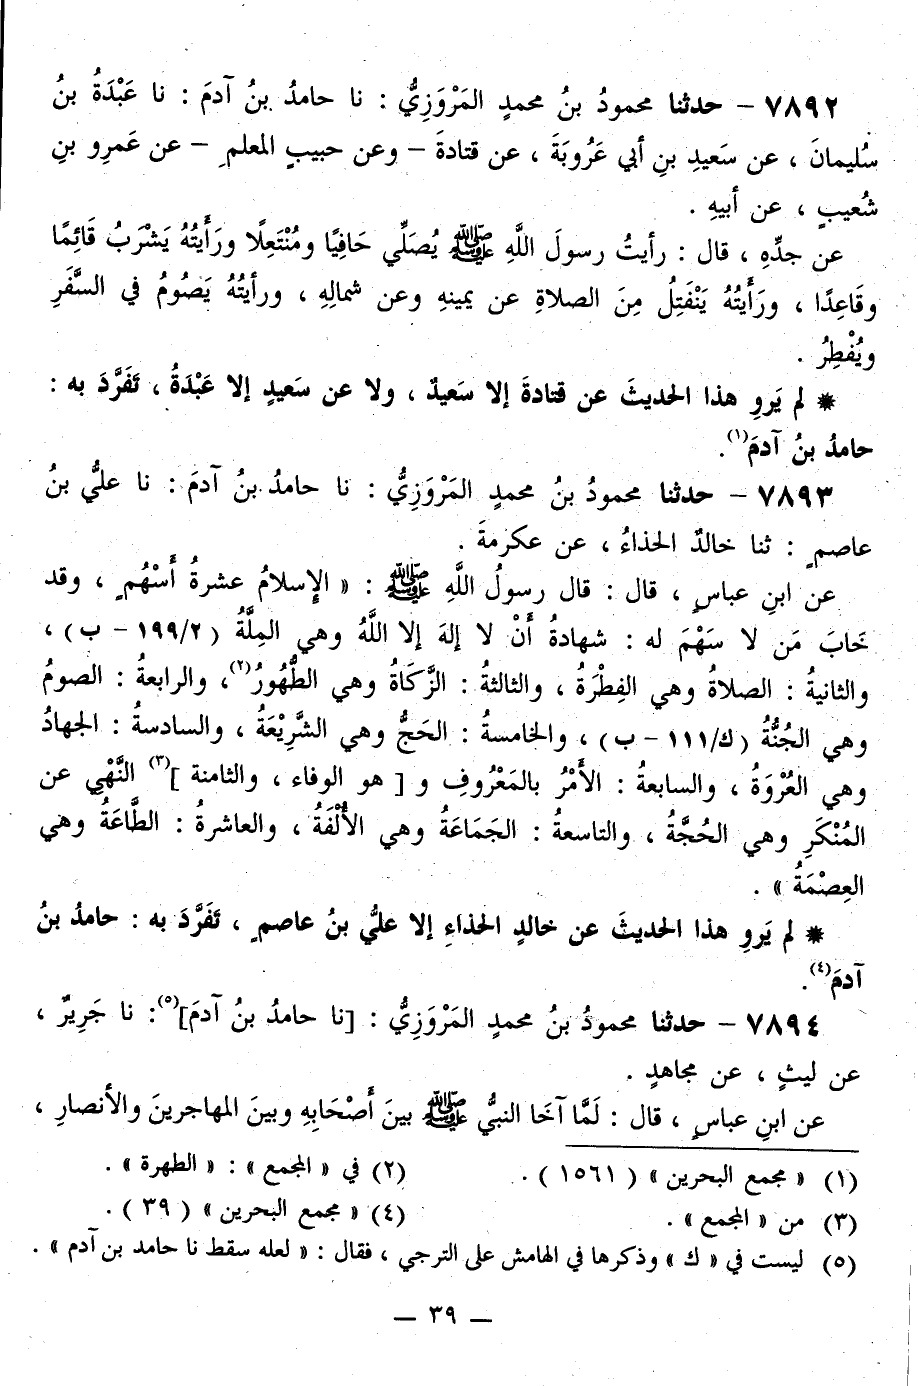 ٧٨٩٢ – حدثنا محمودُ بنُ محمدٍ المَرْوَزِيُّ : نا حامدُ بنُ آدمَ : نا عَبْدَةُ بنُ
سُليمانَ ، عن سَعيدِ بنِ أبي عَرُوبَةَ ، عن قتادةَ – وعن حبيبٍ المعلمِ – عن عَمرِو بنِ
شُعيبٍ ، عن أبيهِ .
عن جدِّهِ ، قال : رأيتُ رسولَ اللَّهِ ﷺ يُصَلِّي حَافِيًا ومُنْتَعِلًا ورَأَيتُهُ يَشْرَبُ قَائِمًا
وقَاعِدًا ، ورَأَيتُهُ يَنْفَتِلُ مِنَ الصلاةِ عن يمينهِ وعن شمالِهِ ، ورأيتُهُ يَصُومُ في السَّفَرِ
ويُفْطِرُ .
* لم يَروِ هذا الحديثَ عن قتادةَ إلا سَعيدٌ ، ولا عن سَعيدٍ إلا عَبْدَةُ ، تَفَرَّدَ به :
حامدُ بنُ آدمَ(١).
٧٨٩٣ – حدثنا محمودُ بنُ محمدٍ المَرْوَزِيُّ : نا حامدُ بنُ آدمَ : نا عليُّ بنُ
عاصمٍ : ثنا خالدٌ الحذاءُ ، عن عكرمةَ .
عن ابنِ عباسٍ ، قال : قال رسولُ اللَّهِ ﷺ : « الإسلامُ عشرةُ أَسْهُمٍ ، وقد
خَابَ مَن لا سَهْمَ له : شهادةُ أَنْ لا إلهَ إلا اللَّهُ وهي المِلَّةُ ( ١٩٩/٢ – ب ) ،
والثانيةُ : الصلاةُ وهي الفِطْرَةُ ، والثالثةُ : الزَّكَاةُ وهي الطُّهُورُ(٢)، والرابعةُ : الصومُ
وهي الجُنَّةُ ( ك/١١١ – ب ) ، والخامسةُ : الحَجُّ وهي الشَّرِيْعَةُ ، والسادسةُ : الجهادُ
وهي العُرْوَةُ ، والسابعةُ : الأَمْرُ بالمَعْرُوفِ و [ هو الوفاء ، والثامنة ](٣) النَّهْي عن
المُنْكَرِ وهي الحُجَّةُ ، والتاسعةُ : الجَمَاعَةُ وهي الأُلْفَةُ ، والعاشرةُ : الطَّاعَةُ وهي
العِصْمَةُ » .
* لم يَروِ هذا الحديثَ عن خالدٍ الحذاءِ إلا عليُّ بنُ عاصمٍ ، تَفَرَّدَ به : حامدُ بنُ
آدمَ(٤).
٧٨٩٤ – حدثنا محمودُ بنُ محمدٍ المَرْوَزِيُّ : [نا حامدُ بنُ آدمَ](٥): نا جَرِيرٌ ،
عن ليثٍ ، عن مجاهدٍ .
عن ابنِ عباسٍ ، قال : لَمَّا آخَا النبيُّ ﷺ بينَ أَصْحَابِهِ وبينَ المهاجرينَ والأنصارِ ،
(١) « مجمع البحرين » ( ١٥٦١ ) . (٢) في « المجمع » : « الطهرة » .
(٣) من « المجمع » . (٤) « مجمع البحرين » ( ٣٩ ) .
(٥) ليست في « ك » وذكرها في الهامش على الترجي ، فقال : « لعله سقط نا حامد بن آدم » .
– ٣٩ –